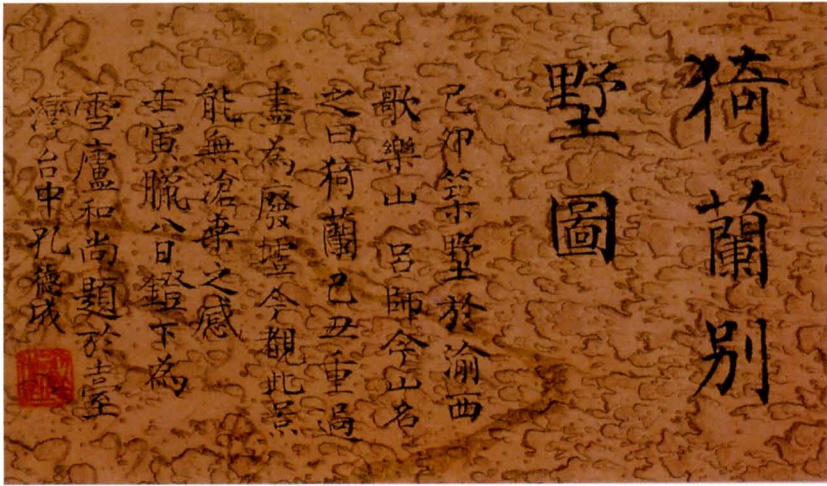 猗蘭別
墅圖
己卯築墅於渝西
歌樂山 呂師今山名
之曰猗蘭己丑重過
盡為廢墟今觀此景
能無滄桒之感
壬寅臘八日鐙下為
雪廬和尚題於臺
灣台中孔德成